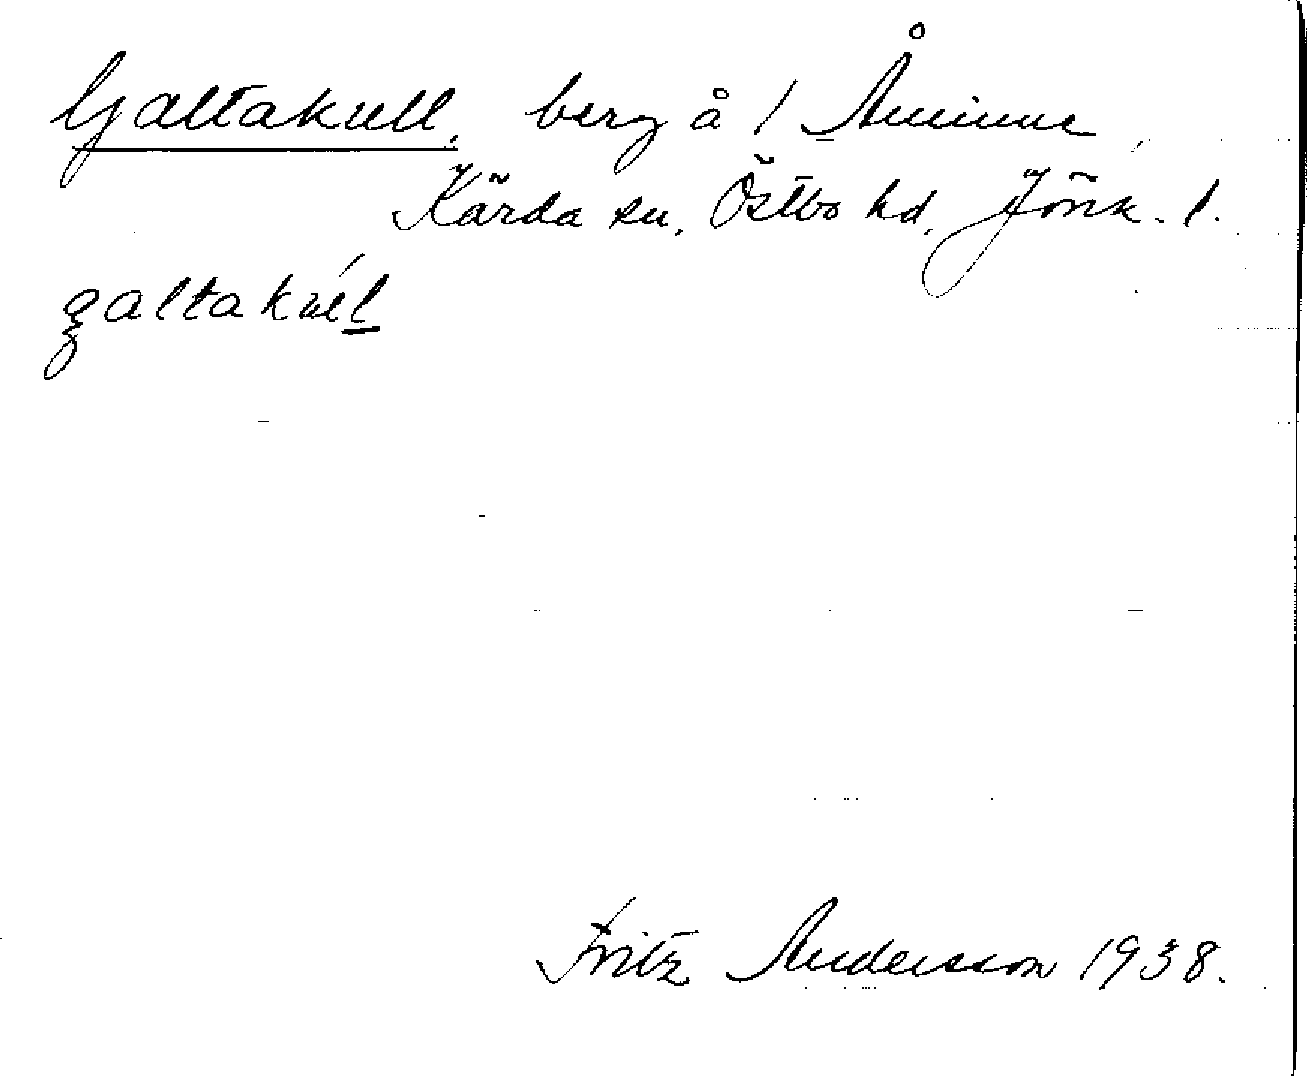 Galtakull, berg å 1 Åminne,
Kärda sn, Östbo hd, Jönk. l.
galtakúll
Fritz Andersson 1938.